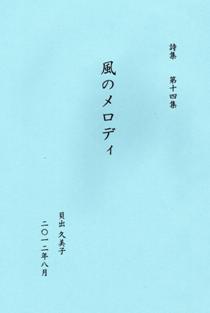 詩集　第十四集
風のメロディ
貝出 久美子
二〇一二年八月